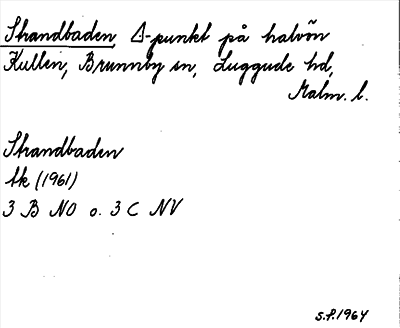 Strandbaden, Δ-punkt på halvön
Kullen, Brunnby sn, Luggude hd,
Malm. l.
Strandbaden
tk (1961)
3 B NO o. 3 C NV
S.F. 1964